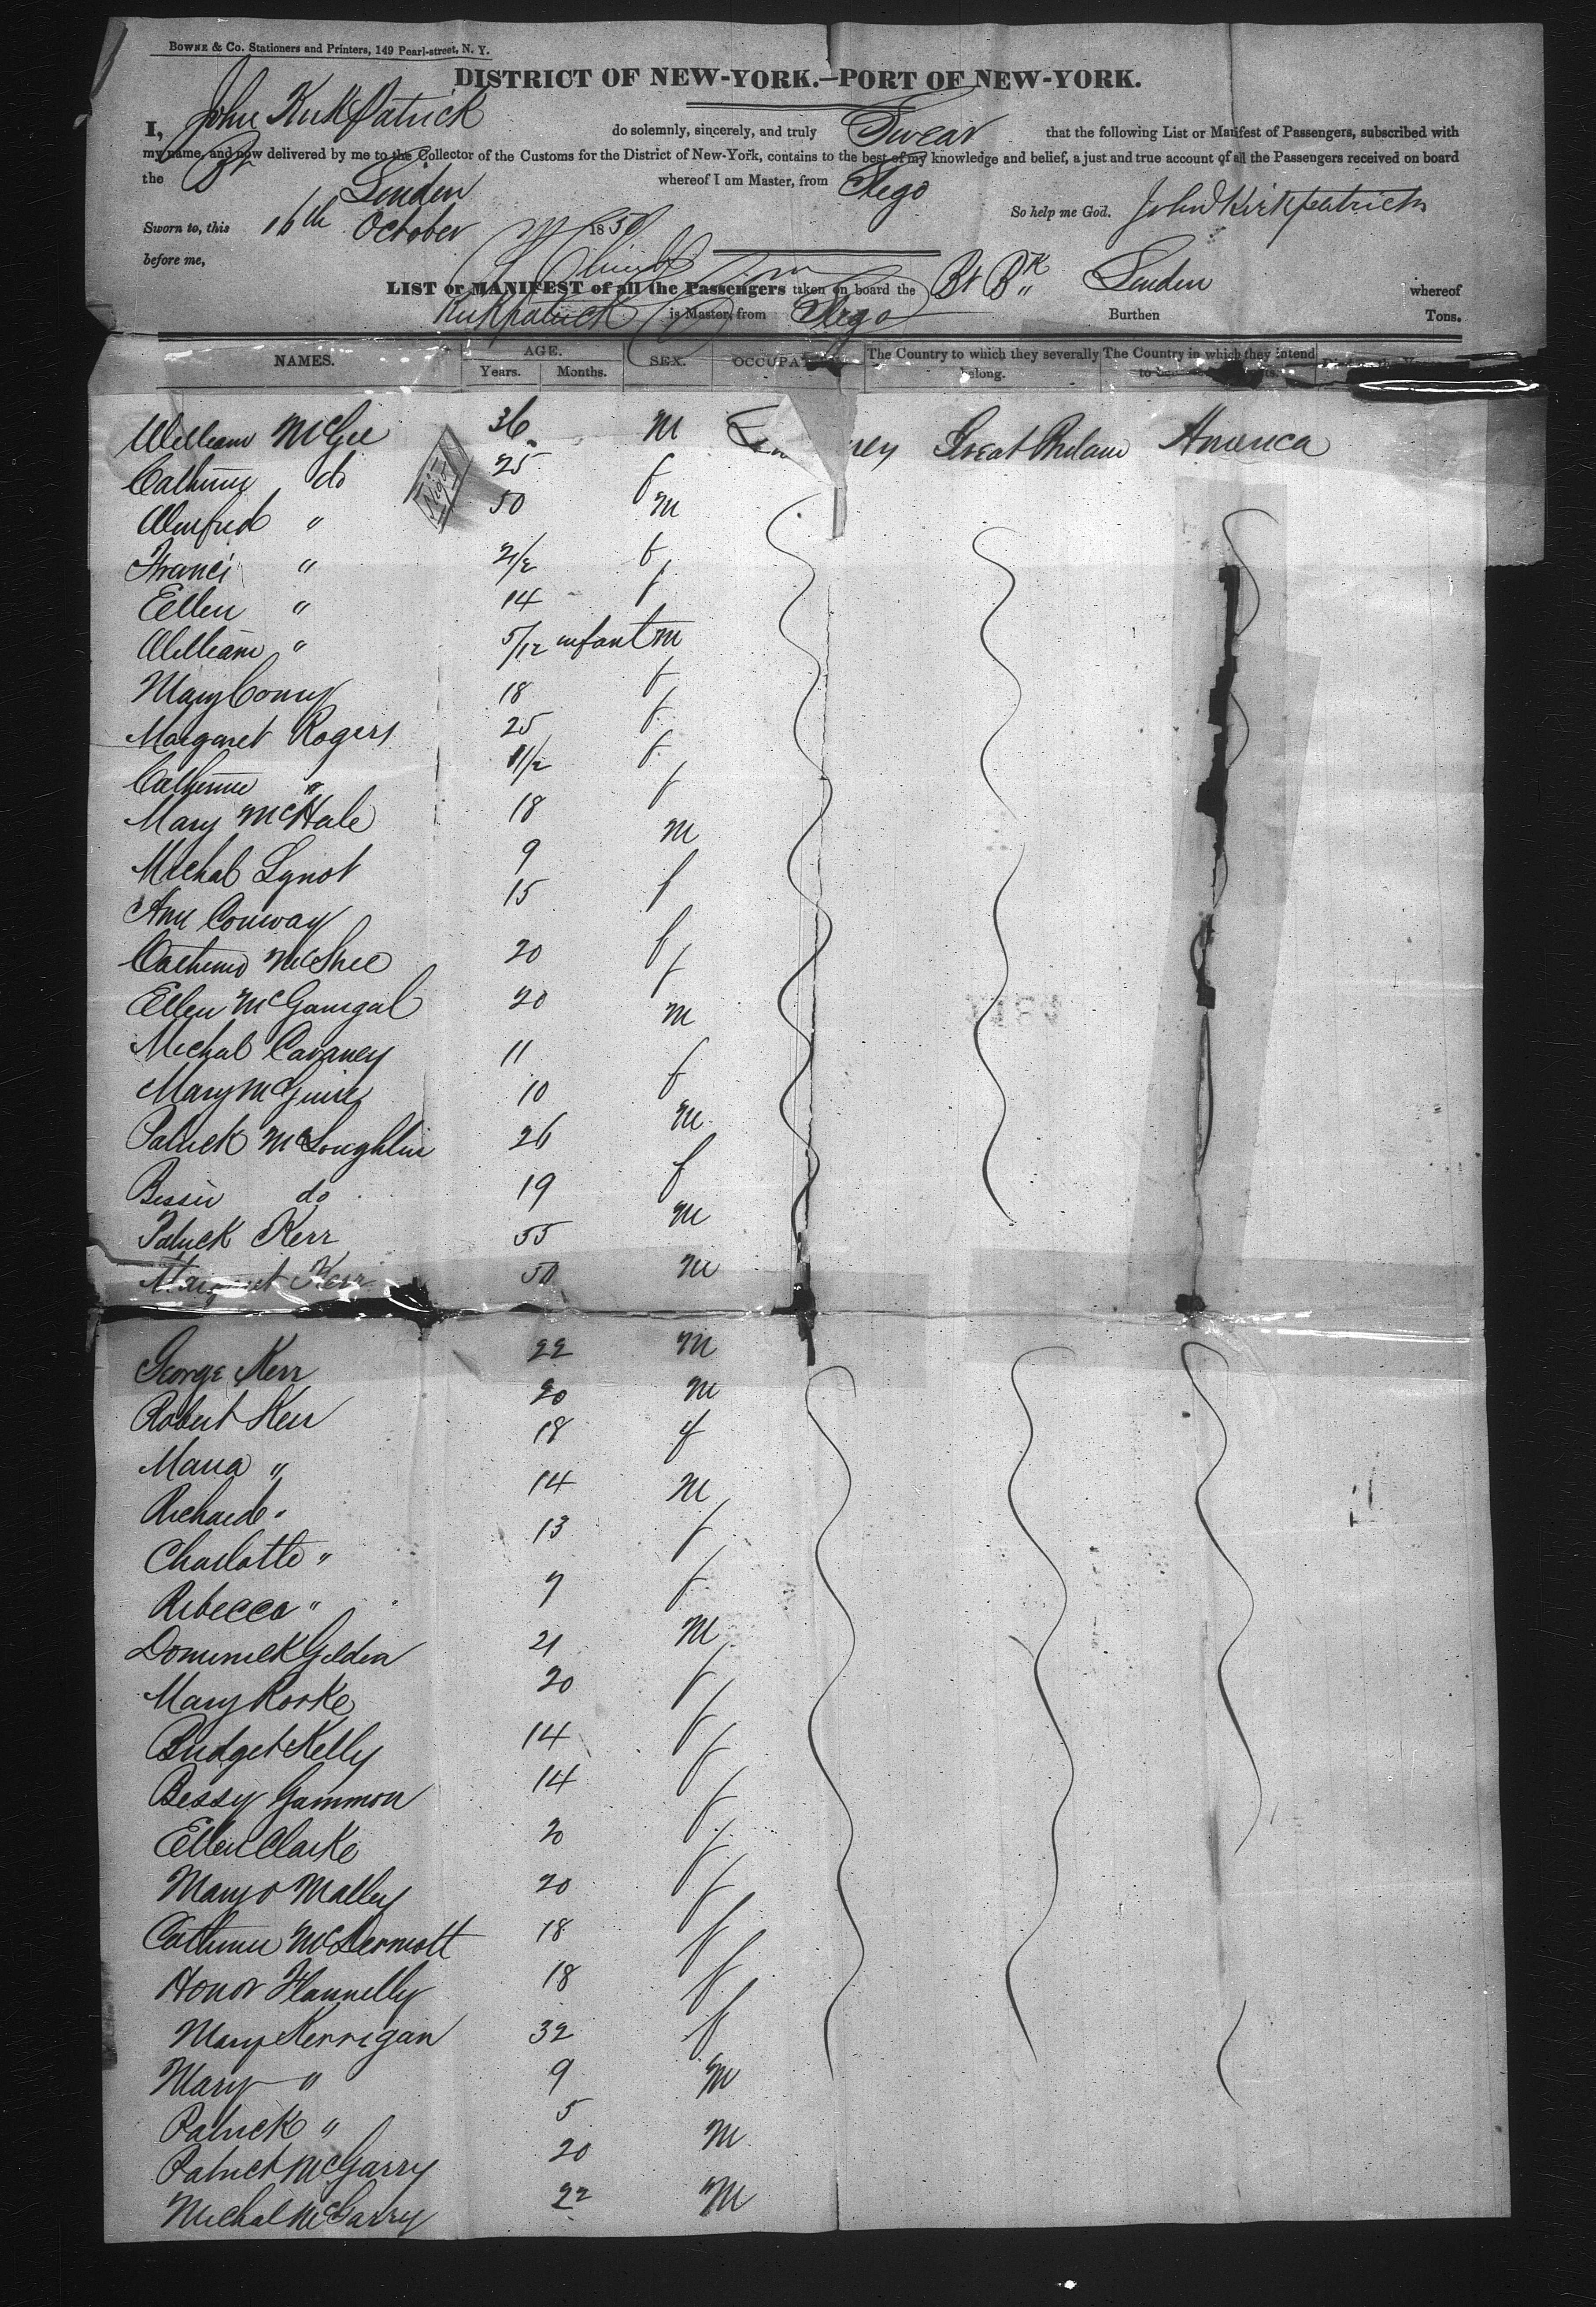 BOWNE & Co. Stationers and Printers, 149 Pearl-street, N. Y.
DISTRICT OF NEW-YORK.—PORT OF NEW-YORK.
I, John Kirkpatrick do solemnly, sincerely, and truly Swear that the following List or Manifest of Passengers, subscribed with
my name, and now delivered by me to the Collector of the Customs for the District of New-York, contains to the best of my knowledge and belief, a just and true account of all the Passengers received on board
the Br Linden whereof I am Master, from Sligo
So help me God. John Kirkpatrick
Sworn to, this 16th October 1850
before me,
LIST or MANIFEST of all the Passengers taken on board the Br Bk Linden whereof
Kirkpatrick is Master, from Sligo Burthen Tons.
NAMES. AGE. SEX. The Country to which they severally The Country in which they intend
Years. Months. belong.
William McGee 36 M Great Britain America
Catherine do 25 f
Winifred " 50 M
Francis " 2 1/2 f
Ellen " 14 f
William " 5/12 infant M
Mary Conry 18 f
Margaret Rogers 25 f
Catherine " 1 1/2 f
Mary McHale 18 f
Michal Lynot 9 M
Ann Conway 15 f
Catherine McShee 20 f
Ellen McGarrigal 20 f
Michal Cavaney 11 M
Mary McGuire 10 f
Patrick McLoughlin 26 M
Bessie do 19 f
Patrick Kerr 55 M
Margaret Kerr 50 M
George Kerr 22 M
Robert Kerr 20 M
Maria " 18 f
Richard " 14 M
Charlotte " 13 f
Rebecca " 7 f
Dominick Gildea 21 M
Mary Rorke 20 f
Bridget Kelly 14 f
Bessy Gammon 14 f
Ellen Clarke 20 f
Mary o Malley 20 f
Catherine McDermott 18 f
Honor Flannelly 18 f
Mary Kerrigan 32 f
Mary " 9 f
Patrick " 5 M
Patrick McGarry 20 M
Michal McGarry 22 M